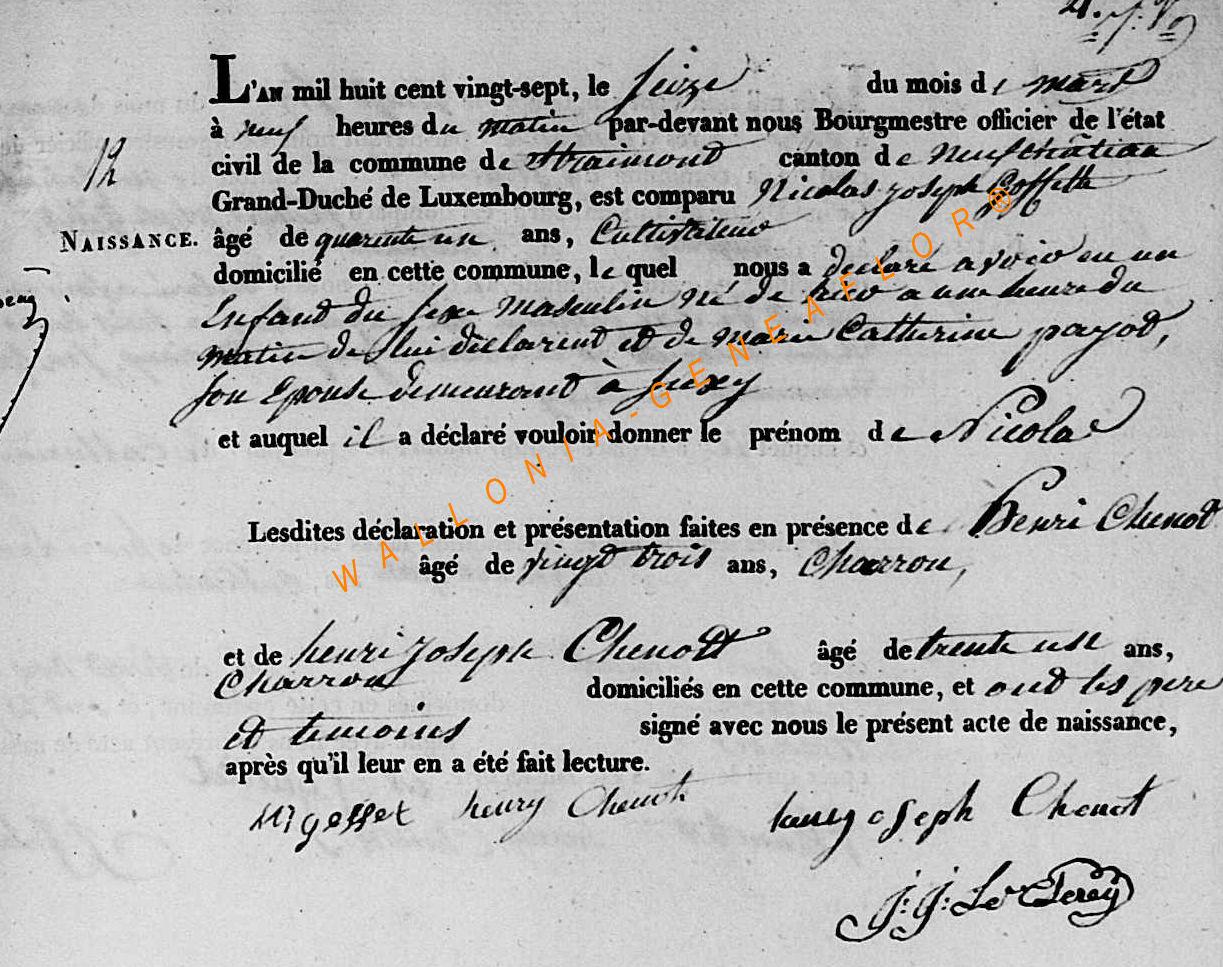 L'AN mil huit cent vingt-sept, le seize du mois de mars
à neuf heures du matin par-devant nous Bourgmestre officier de l'état
civil de la commune de Straimont canton de neufchâteau
12
Grand-Duché de Luxembourg, est comparu Nicolas joseph Goffette
NAISSANCE. âgé de quarente un ans, Cultivateur
domicilié en cette commune, le quel nous a déclaré avoir eu un
Enfant du sexe masculin né de hier a une heure du
matin de lui déclarent et de marie Catherine payot,
son Epouse demeurant à Suxy
et auquel il a déclaré vouloir donner le prénom de Nicolas
Lesdites déclaration et présentation faites en présence de Henri Chenot
âgé de vingt trois ans, Charron,
et de henri joseph Chenott âgé de trente un ans,
Charron domiciliés en cette commune, et ont les pere
et temoins signé avec nous le présent acte de naissance,
après qu'il leur en a été fait lecture.
goffet henry Chenot
joseph Chenot
J: J: Le
WALLONIA-GENEAFLOR®